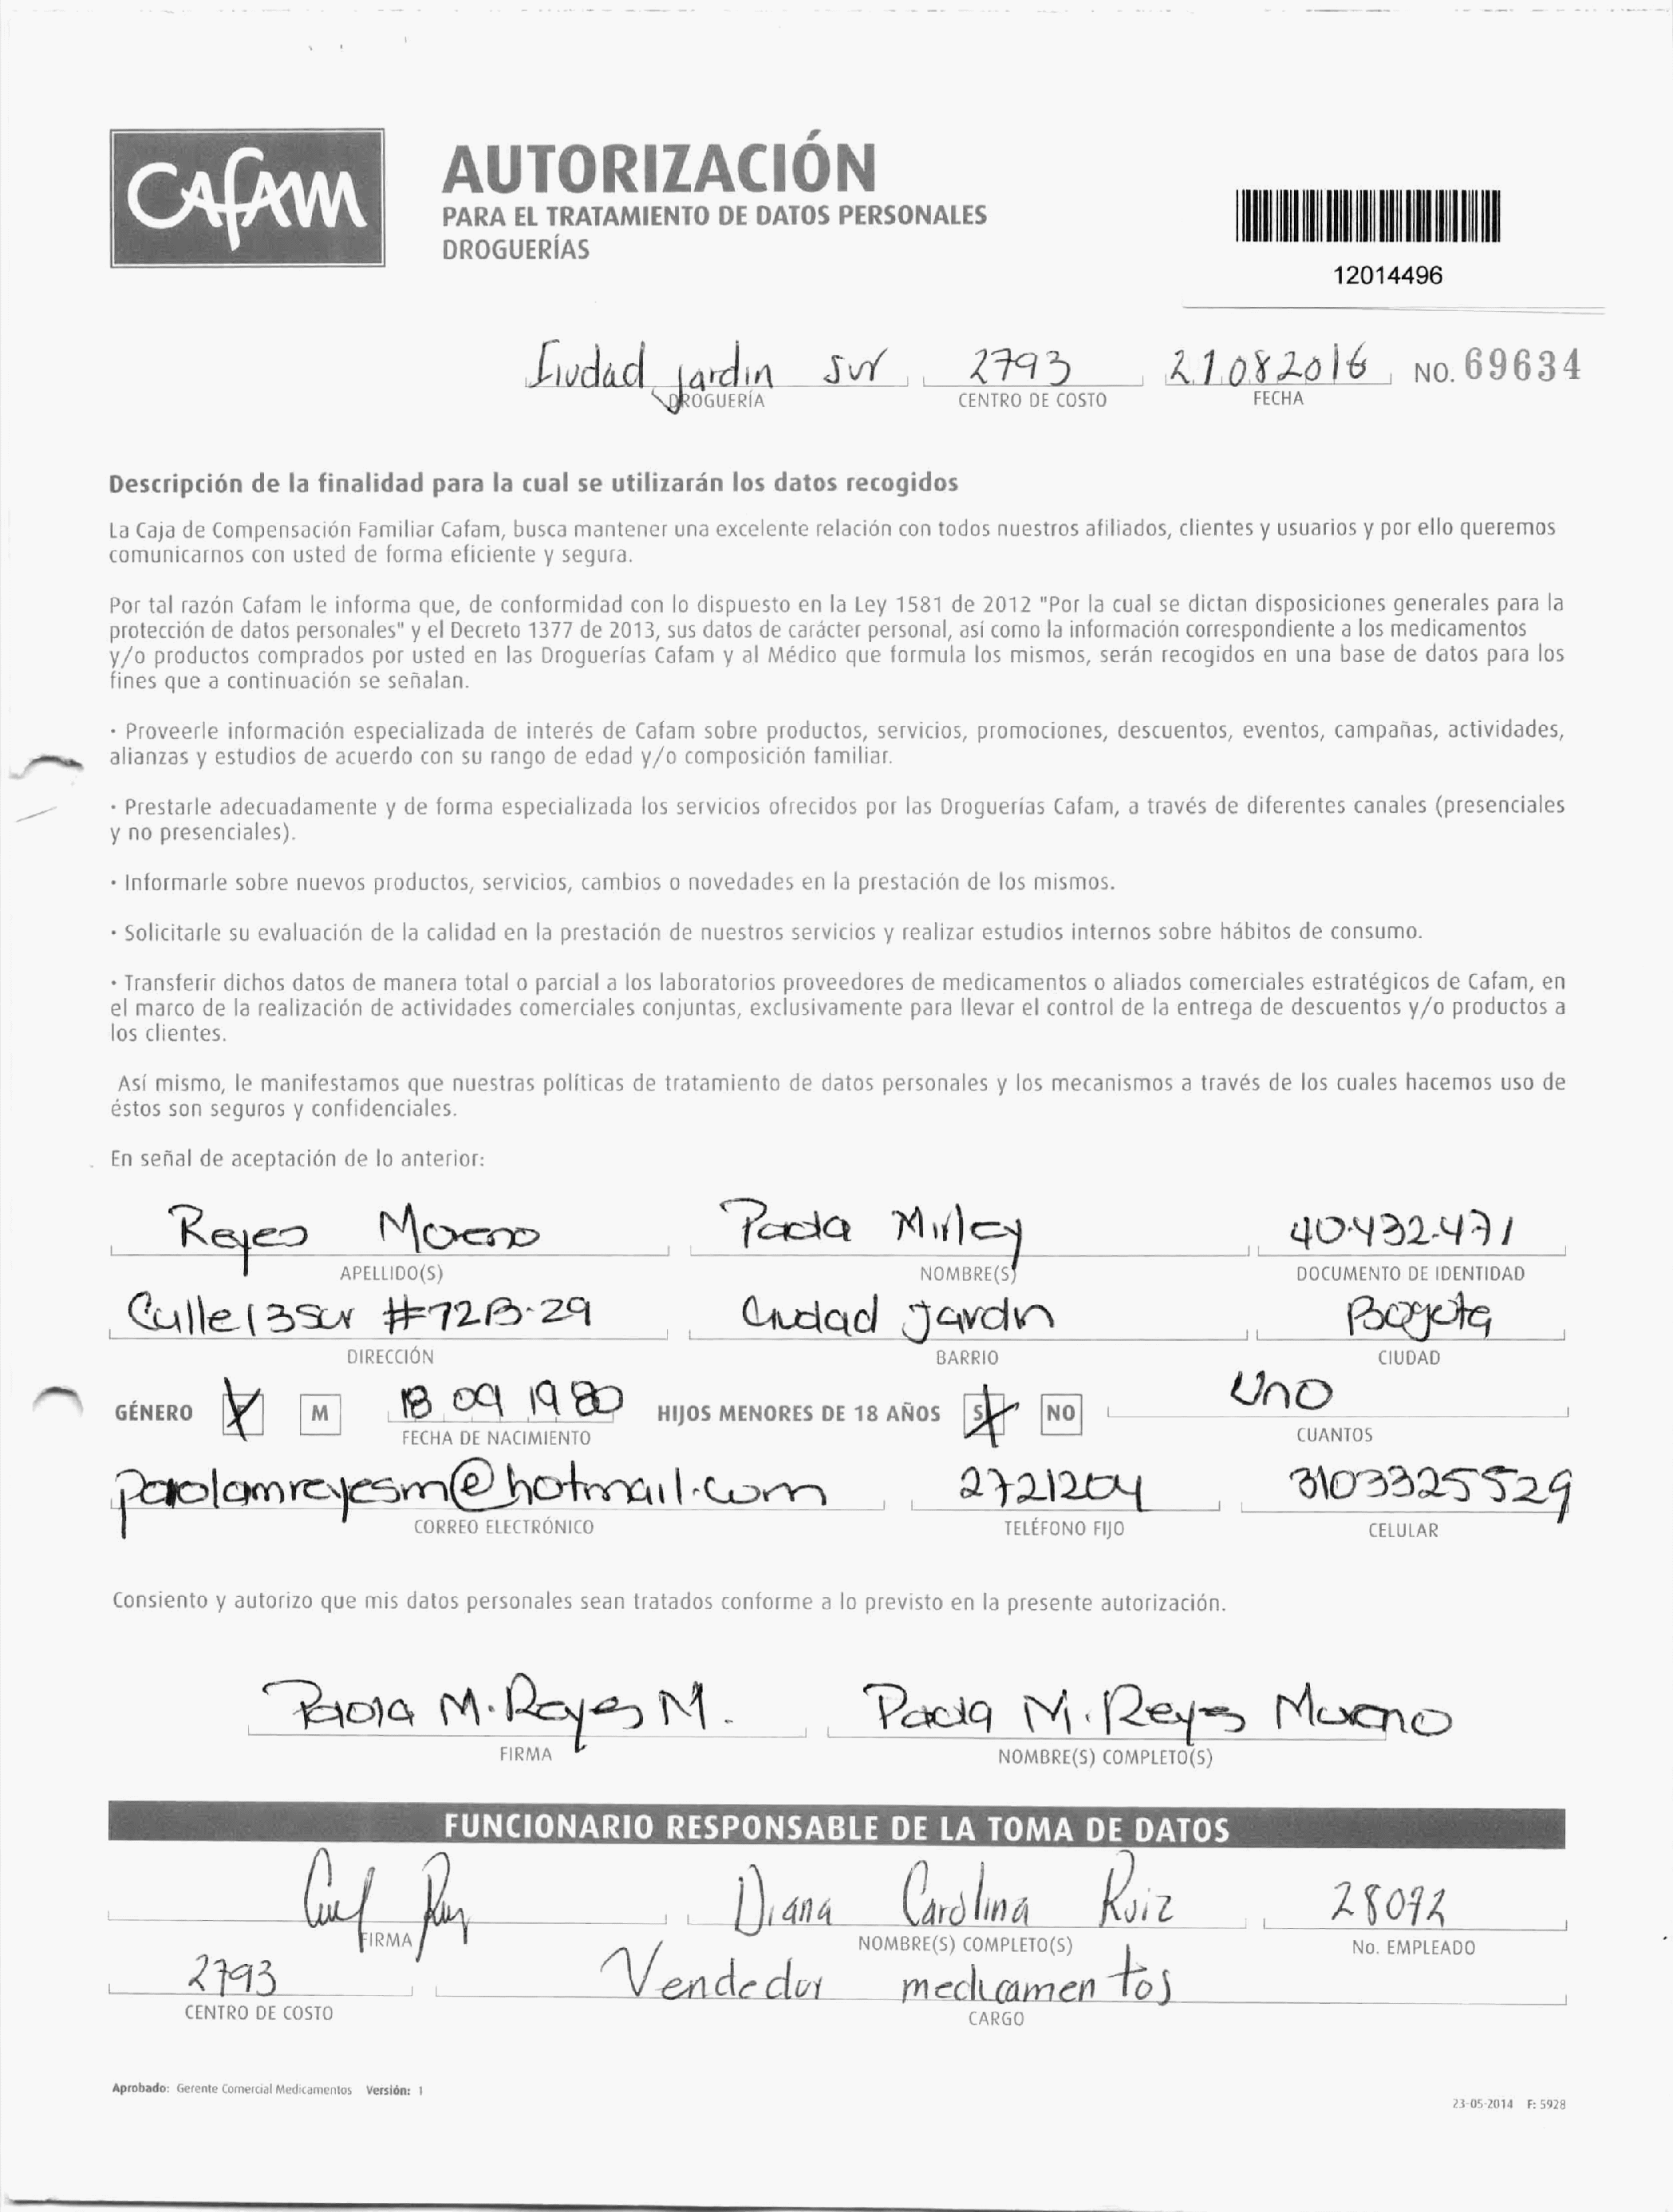 CAFAM
AUTORIZACIÓN
PARA EL TRATAMIENTO DE DATOS PERSONALES
DROGUERÍAS
12014496
Ciudad Jardin Sur 2793 21 08 2016 NO. 69634
DROGUERÍA CENTRO DE COSTO FECHA
Descripción de la finalidad para la cual se utilizarán los datos recogidos
La Caja de Compensación Familiar Cafam, busca mantener una excelente relación con todos nuestros afiliados, clientes y usuarios y por ello queremos
comunicarnos con usted de forma eficiente y segura.
Por tal razón Cafam le informa que, de conformidad con lo dispuesto en la Ley 1581 de 2012 "Por la cual se dictan disposiciones generales para la
protección de datos personales" y el Decreto 1377 de 2013, sus datos de carácter personal, así como la información correspondiente a los medicamentos
y/o productos comprados por usted en las Droguerías Cafam y al Médico que formula los mismos, serán recogidos en una base de datos para los
fines que a continuación se señalan.
· Proveerle información especializada de interés de Cafam sobre productos, servicios, promociones, descuentos, eventos, campañas, actividades,
alianzas y estudios de acuerdo con su rango de edad y/o composición familiar.
· Prestarle adecuadamente y de forma especializada los servicios ofrecidos por las Droguerías Cafam, a través de diferentes canales (presenciales
y no presenciales).
· Informarle sobre nuevos productos, servicios, cambios o novedades en la prestación de los mismos.
· Solicitarle su evaluación de la calidad en la prestación de nuestros servicios y realizar estudios internos sobre hábitos de consumo.
· Transferir dichos datos de manera total o parcial a los laboratorios proveedores de medicamentos o aliados comerciales estratégicos de Cafam, en
el marco de la realización de actividades comerciales conjuntas, exclusivamente para llevar el control de la entrega de descuentos y/o productos a
los clientes.
Así mismo, le manifestamos que nuestras políticas de tratamiento de datos personales y los mecanismos a través de los cuales hacemos uso de
éstos son seguros y confidenciales.
En señal de aceptación de lo anterior:
Reyes Moreno Paola Mirley 40.432.471
APELLIDO(S) NOMBRE(S) DOCUMENTO DE IDENTIDAD
Calle 13 Sur #72B-29 Ciudad Jardin Bogota
DIRECCIÓN BARRIO CIUDAD
GÉNERO M 18 09 1980 HIJOS MENORES DE 18 AÑOS SI NO Uno
FECHA DE NACIMIENTO CUANTOS
paolamreyesm@hotmail.com 2721204 3103325529
CORREO ELECTRÓNICO TELÉFONO FIJO CELULAR
Consiento y autorizo que mis datos personales sean tratados conforme a lo previsto en la presente autorización.
Paola M. Reyes M. Paola M. Reyes Moreno
FIRMA NOMBRE(S) COMPLETO(S)
FUNCIONARIO RESPONSABLE DE LA TOMA DE DATOS
Diana Carolina Ruiz 28092
FIRMA NOMBRE(S) COMPLETO(S) No. EMPLEADO
2793 Vendedor medicamentos
CENTRO DE COSTO CARGO
Aprobado: Gerente Comercial Medicamentos Versión: 1
23-05-2014 F: 5928